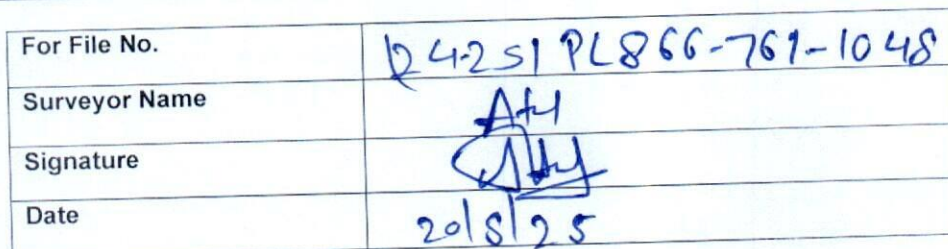 For File No. 24-25/PL866-761-1048
Surveyor Name Atul
Signature
Date 20/8/25